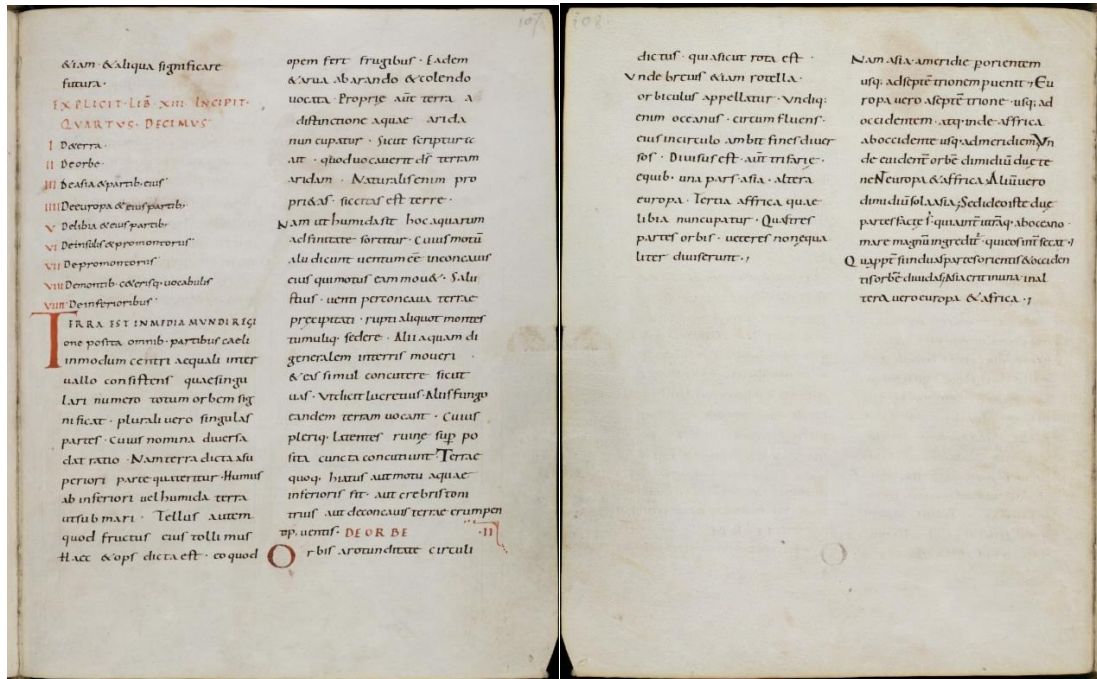 107
&iam · &aliqua significare
futura ·
EXPLICIT · LIB̄ · XIII INCIPIT ·
QUARTUS · DECIMUS
I De terra ·
II De orbe ·
III De asia & partib; eius
IIII De europa & eius partib;
V De libia & eius partib;
VI De insulis & promontorus
VII De promontorus
VIII De montib · c&erisq; vocabulis
VIIII De inferioribus
TERRA EST IN MEDIA MUNDI REGI
one posita omnib · partibus caeli
in modum centri aequali inter
uallo consistens quae singu
lari numero totum orbem sig
nificat · plurali uero singulas
partes · Cuius nomina diuersa
dat ratio · Nam terra dicta asu
periori parte qua teritur · Humus
ab inferiori uel humida terra
ut sub mari · Tellus autem
quod fructus eius tollimus
Haec & ops dicta est · eo quod
opem fert frugibus · Eadem
& arua ab arando & colendo
uocata · Proprie aūt terra a
distinctione aquae arida
nuncupatur · Sicut scriptura
ait · quod uocauerit d̄s terram
aridam · Naturalis enim pro
pri&as · siccitas est terre ·
Nam ut humida sit hoc aquarum
adfinitate sortitur · Cuius motū
alii dicunt uentum eē in concauis
eius qui motus eam mou& · Salu
stius · uenti per concaua terrae
precipitati · rupti aliquot montes
tumuliq; sedere · Alii aquam di
generalem in terris moueri
& eas simul concutere sicut
uas · Ut dicit lucretius · Alii sfungo
eandem terram uocant · Cuius
pleriq; latentes ruine sup̄ po
sita cuncta concutiunt · Terrae
quoq; hiatus aut motu aquae
inferioris fit · aut crebris toni
truis aut de concauis terrae erumpen
uentis · DE ORBE · II
Orbis a rotunditate circuli
108
dictus · quia sicut rota est ·
Unde breuis &iam rotella ·
orbiculus appellatur · Undiq;
enim oceanus · circumfluens ·
eius in circulo ambit fines diuer
sos · Diuisus est · aūt trifarie ·
equib · una pars · asia · altera
europa · Tertia affrica quae
libia nuncupatur · Quas tres
partes orbis · ueteres non equa
liter diuiserunt ·,
Nam asia · a meridie per orientem
usq; ad septētrionem peruenit; Eu
ropa uero a septētrione · usq; ad
occidentem · atq; inde affrica
ab occidente usq; ad meridiem Un
de euidentᵉ orbē dimidiū duę te
neN europa & affrica Aliū uero
dimidiū sola asia; Sed ideo iste due
partes facte s̄ · quia int̄ utrāq; ab oceano ·
mare magnū ingredit̄ · qui eos int̄secat ·,
Quapp̄t si in duas partes orientis & occiden
tis orbē diuidas; Asia erit in una · in al
tera uero europa & africa ·,